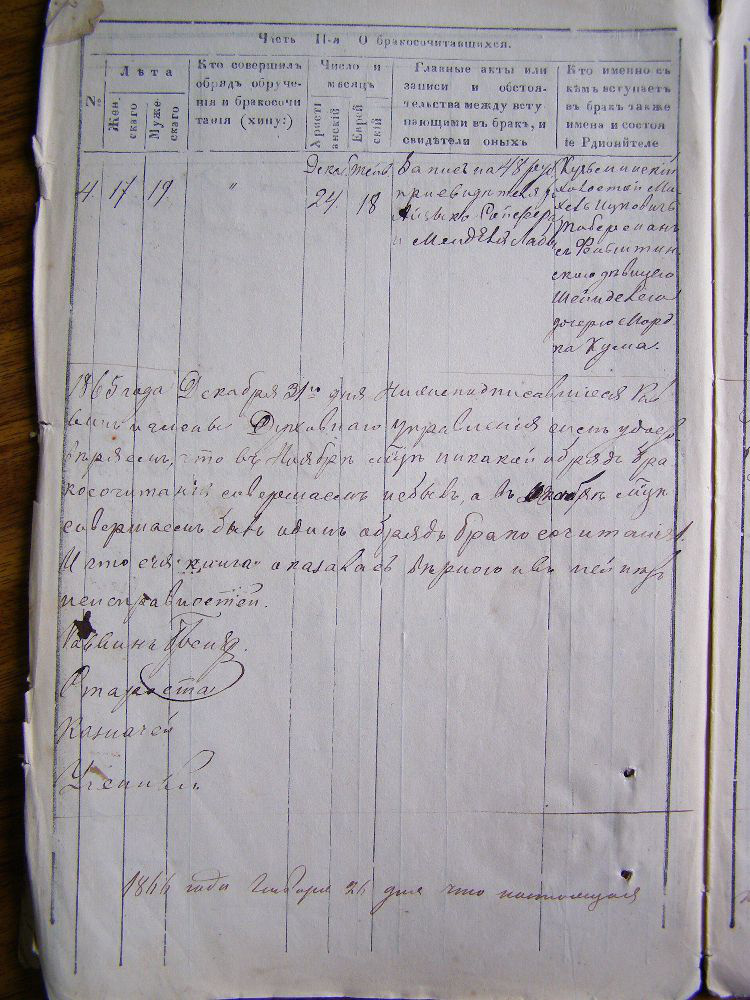 Часть II-я О бракосочитавшихся.
№
Лѣта
Жен
скаго
Муже
скаго
Кто совершилъ
обрядъ обруче
нія и бракосочи
танія (хипу:)
Число и
мѣсяцъ
Христі
анскій
Еврей
скій
Главные акты или
записи и обстоя-
тельства между всту
пающими въ бракъ, и
свидѣтели оныхъ
Кто именно съ
кѣмъ вступаетъ
въ бракъ также
имена и состоя
іе Рдиойителе
4. 17 19 "
Декаб
24.
18
Запись на 48 руб
при свидѣтеляхъ
и Мендѣля
холостой
съ
скаго дѣвицею
дочерьюМорд
ка Кума.
1865 года Декабря 31го дня Нижеподписавшіеся Рав
винъ и члены Духовнаго Управленія симъ удосто
вѣряемъ, что въ Ноябрѣ м-цѣ никакой обрядъ бра
косочитанія совершаемъ небывъ, а въ Декабрѣ м-цѣ
совершаемъ былъ одинъ обрядъ бракосочитанія.
И что сія книга оказалась вѣрною и въ ней нѣтъ
неисправностей.
Раввинъ
Староста
Казначей
Ученый
1866 года Генваря 26 дня что настоящая